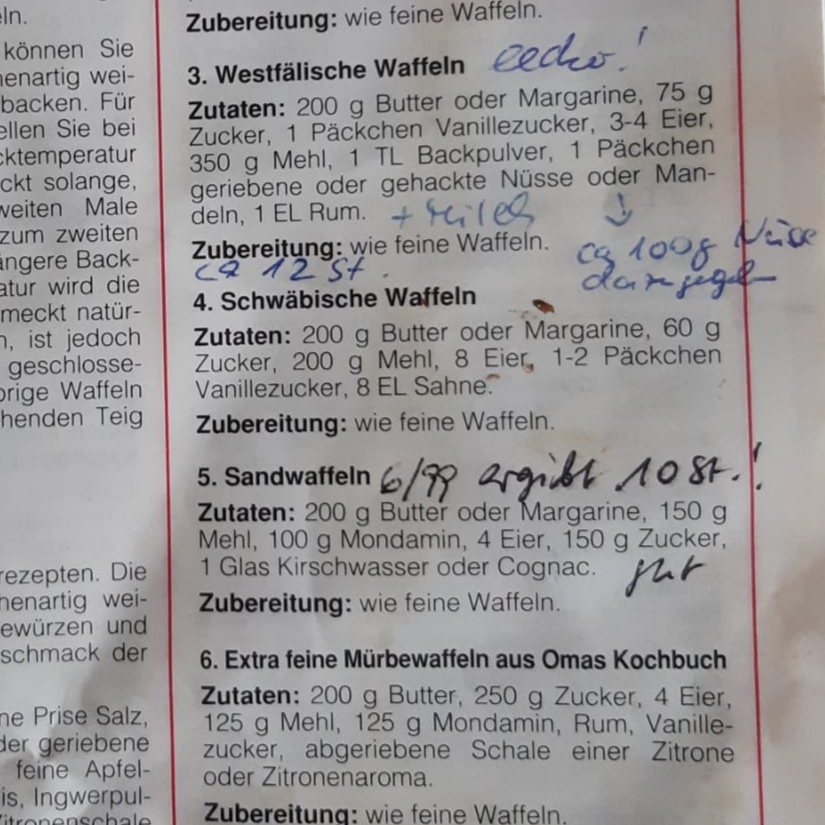 ln.
können Sie
henartig wei-
backen. Für
ellen Sie bei
cktemperatur
ckt solange,
weiten Male
zum zweiten
ängere Back-
atur wird die
meckt natür-
n, ist jedoch
geschlosse-
orige Waffeln
henden Teig
rezepten. Die
henartig wei-
ewürzen und
schmack der
ne Prise Salz,
der geriebene
feine Apfel-
is, Ingwerpul-
itronenschale
Zubereitung: wie feine Waffeln.
3. Westfälische Waffeln lecker!
Zutaten: 200 g Butter oder Margarine, 75 g
Zucker, 1 Päckchen Vanillezucker, 3-4 Eier,
350 g Mehl, 1 TL Backpulver, 1 Päckchen
geriebene oder gehackte Nüsse oder Man-
deln, 1 EL Rum. + Milch
Zubereitung: wie feine Waffeln. ca 100g Nüsse
ca 12 St.
4. Schwäbische Waffeln
Zutaten: 200 g Butter oder Margarine, 60 g
Zucker, 200 g Mehl, 8 Eier, 1-2 Päckchen
Vanillezucker, 8 EL Sahne.
Zubereitung: wie feine Waffeln.
5. Sandwaffeln 6/99 ergibt 10 St.!
Zutaten: 200 g Butter oder Margarine, 150 g
Mehl, 100 g Mondamin, 4 Eier, 150 g Zucker,
1 Glas Kirschwasser oder Cognac. gut
Zubereitung: wie feine Waffeln.
6. Extra feine Mürbewaffeln aus Omas Kochbuch
Zutaten: 200 g Butter, 250 g Zucker, 4 Eier,
125 g Mehl, 125 g Mondamin, Rum, Vanille-
zucker, abgeriebene Schale einer Zitrone
oder Zitronenaroma.
Zubereitung: wie feine Waffeln.